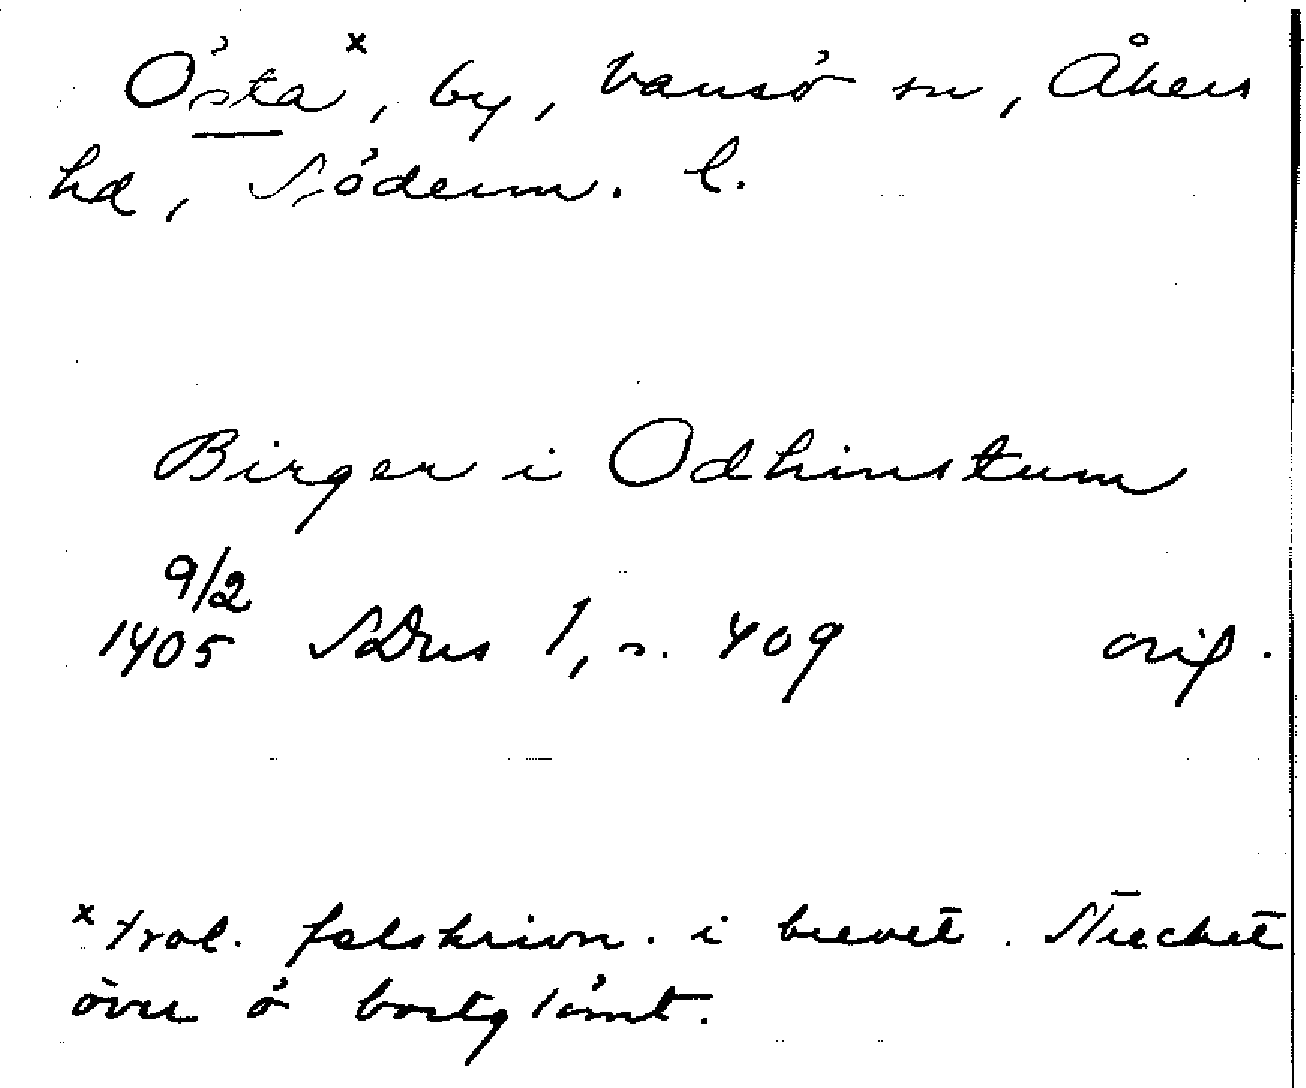 Östa ˣ, by, Vansö sn, Åkers
hd, Söderm. l.
Birger i Odhinstum
9/2
1405 SDns 1, s. 409 orig.
ˣ trol. felskrivn. i brevet. Strecket
över ö bortglömt.